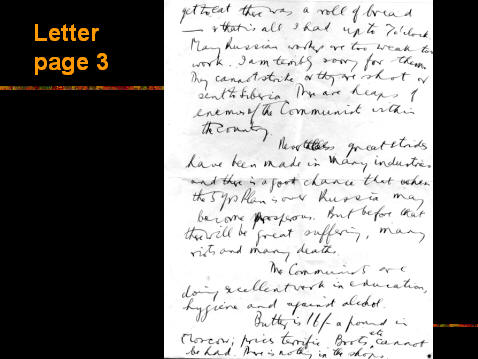 Letter
page 3
get to eat there was a roll of bread
— & that is all I had up to 7 o'clock
Many Russian workers are too weak to
work. I am terribly sorry for them.
They cannot strike or they are shot or
sent to Siberia. There are heaps of
enemies of the Communist within
the country.
Nevertheless great strides
have been made in many industries
and there is a good chance that when
the 5 yrs Plan is over Russia may
become prosperous. But before that
there will be great suffering, many
riots and many deaths.
The Communists are
doing excellent work in education,
hygiene and against alcohol.
Butter is 16/- a pound in
Moscow; prices terrific. Boots, etc cannot
be had. There is nothing in the shops.